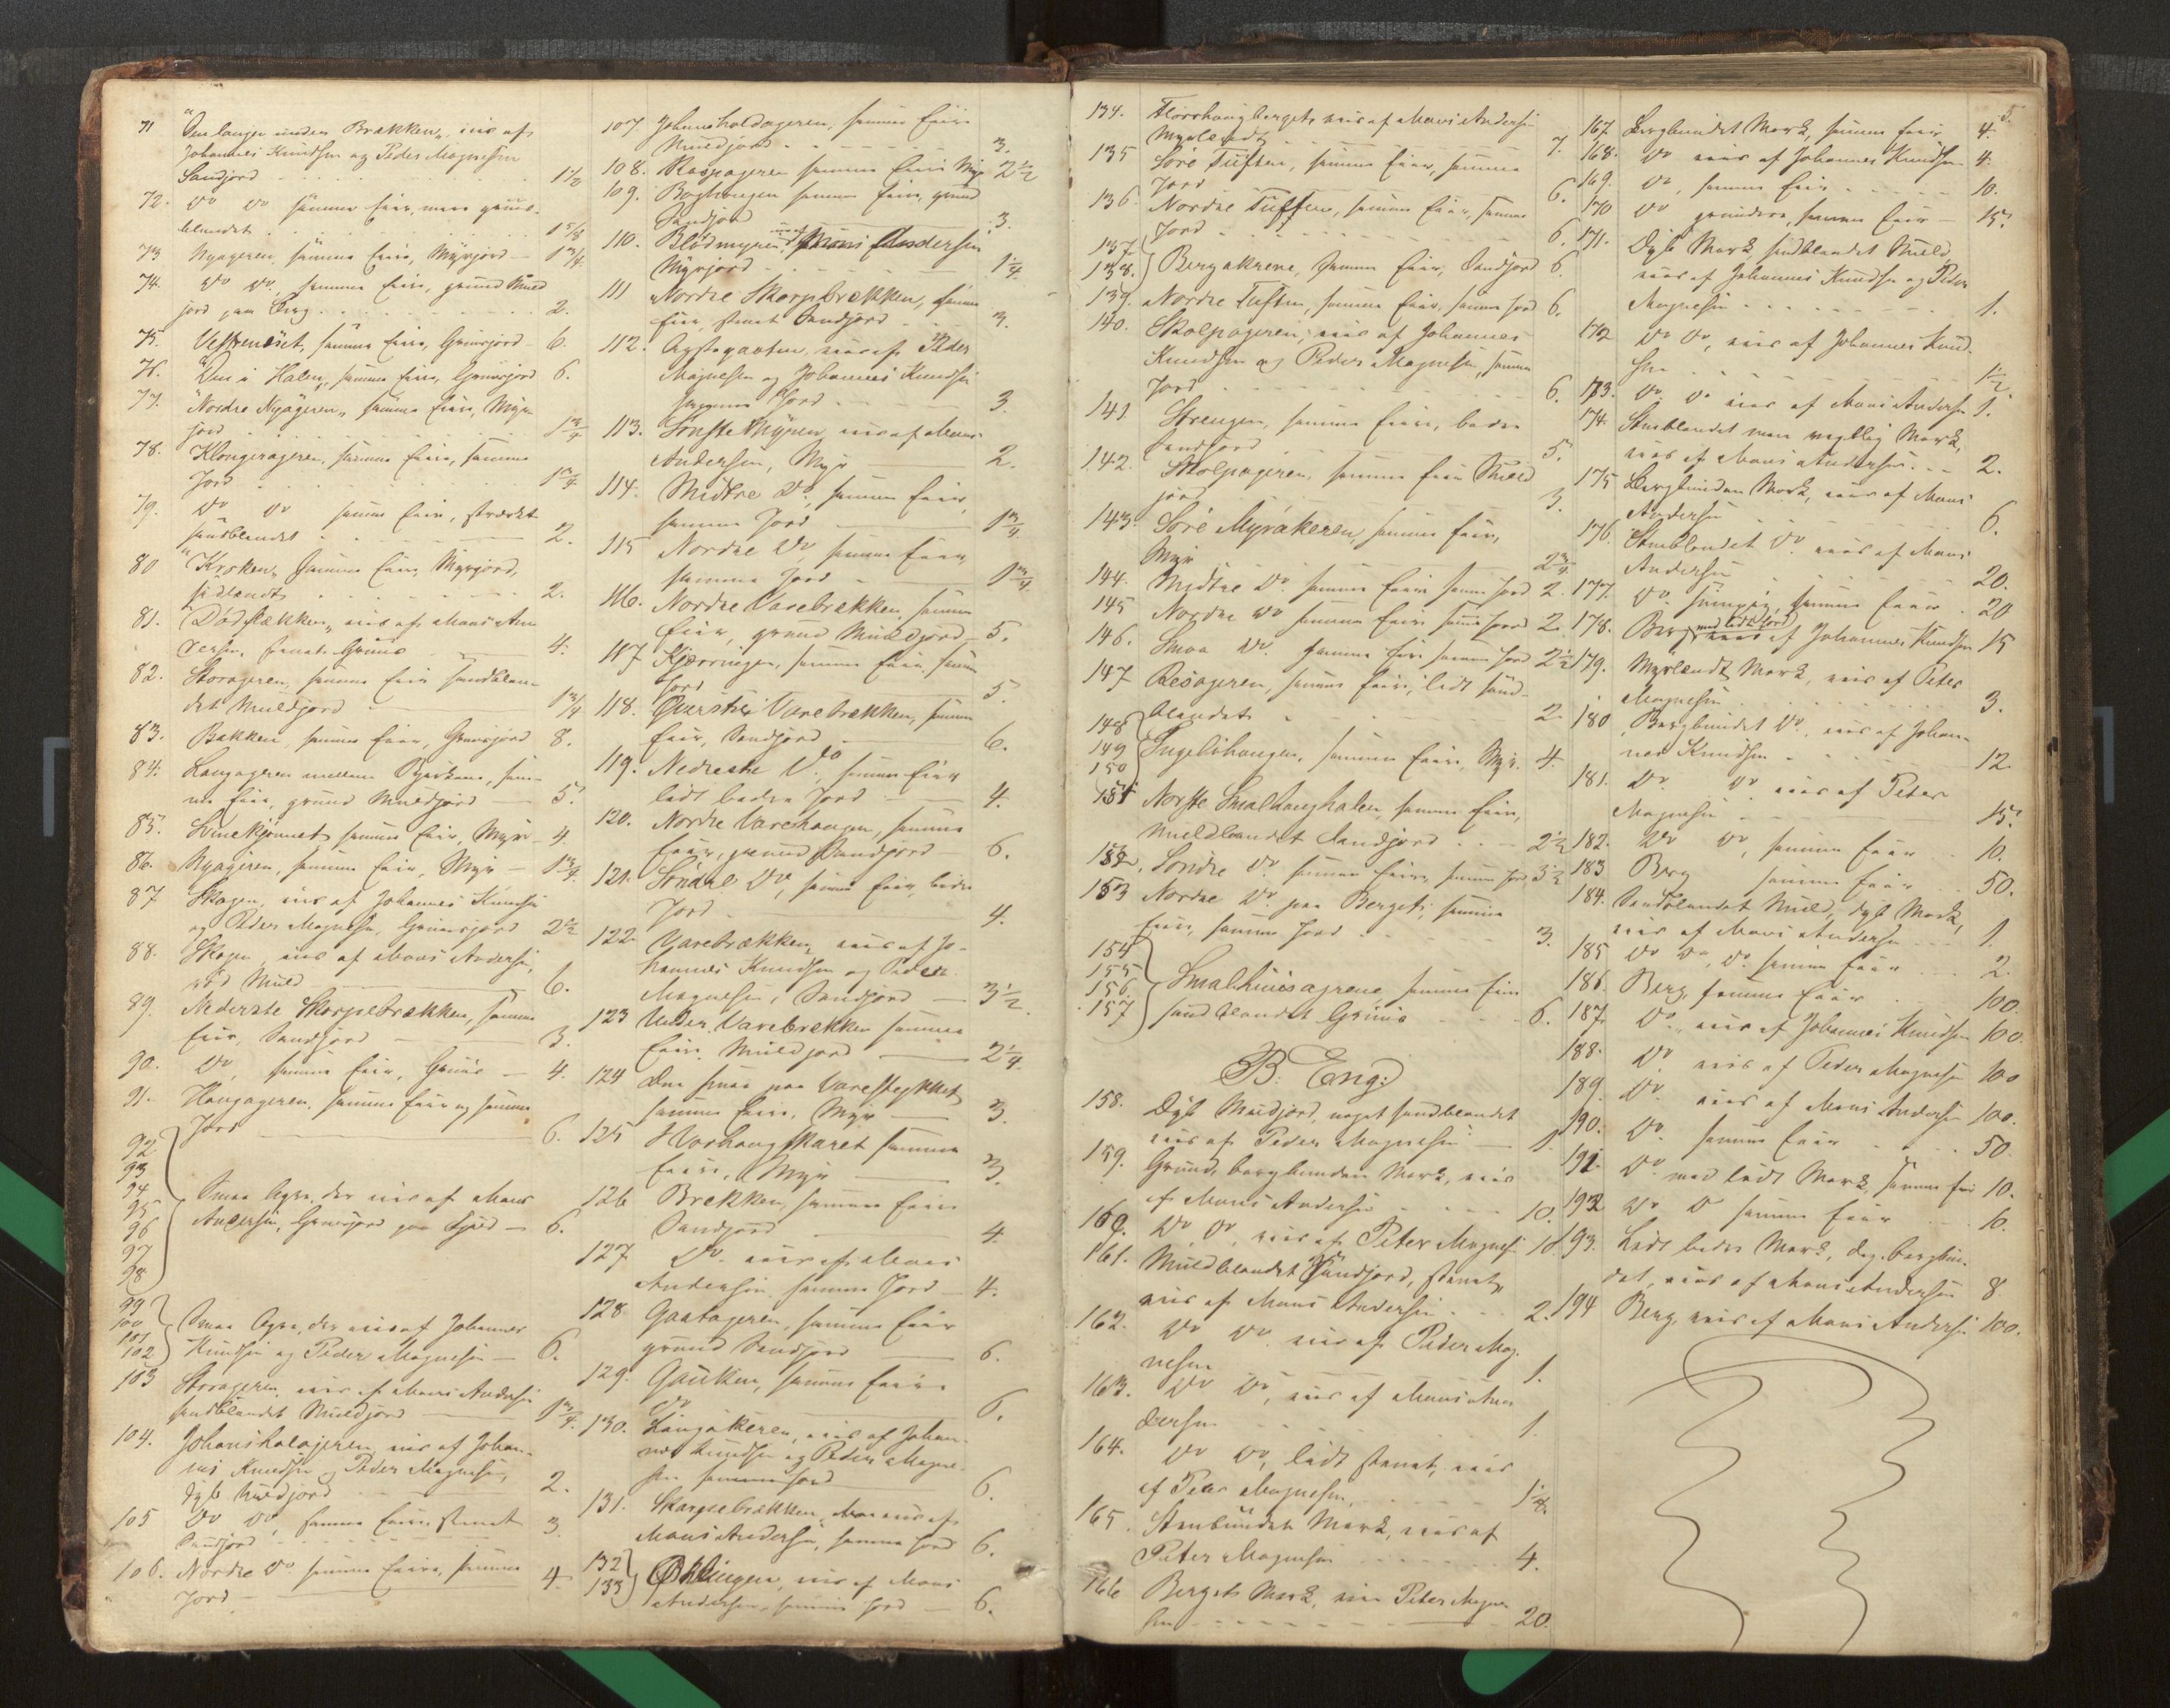 71 "Den lange under Brækken", eies af
Johannes Knudsen og Peder Magnesen
Sandjord 1 1/2
72. Do Do samme Eier, mere gruus-
blandet 1 5/8
73 Nyageren, samme Eier, Myrjord 1 3/4
74. Do Do, samme Eier, grund Muld
jord paa Berg 2.
75. Vestrenöiet, samme Eier, Gruusjord 6.
76. "Den i Halen", samme Eier, Gruusjord 6.
77. "Nordre Nyageren", samme Eier, Myr-
jord 1 3/4
78. Klongerageren, samme Eier, samme
Jord 1 3/4
79. Do Do samme Eier, stærkt
sandblandet 2.
80 "Kroken", samme Eier, Myrjord,
sidlændt 2.
81. "Dödflækken", eies af Mons An-
dersen, stenet Gruus 4.
82. Storageren, samme Eier sandblan-
det Muldjord 1 3/4
83. Bakken, samme Eier, Gruusjord 8.
84. Langageren mellem, sam-
me Eier, grund Muldjord 5.
85. Svinekjønnet samme Eier, Myr 4.
86. Nyageren, samme Eier, Myr 1 3/4
87 Skagen, eies af Johannes Knudsen
og Peder Magnesen, Gruusjord 2 1/2
88. Skagen, eies af Mons Andersen,
rød Muld 6.
89. Nederste Skarpebrækken, samme
Eier, Sandjord 3.
90. Do, samme Eier, Gruus 4.
91. Haugageren, samme Eier og samme
Jord 6.
92
93
94
95
96
97
98
Smaa Agre, der eies af Mons
Andersen, Gruusjord paa 6.
99
100
101
102
Smaa Agre, der eies af Johannes
Knudsen og Peder Magnesen 6.
103 Storageren, eies af Mons Andersen
sandblandet Muldjord 1 3/4
104. Johanshalageren, eies af Johan-
nes Knudsen og Peder Magnesen,
dyb Muldjord 2.
105 Do Do, samme Eier, stenet
Sandjord 3
106. Nordre Do samme Eier, samme
Jord 4
107 Johanshalageren, samme Eier
Muldjord 3.
108. Raspageren samme Eier Myr 2 1/2
109. Baghaugen samme Eier, grund
Sandjord 3.
110. Blödmyren eies af Mons Andersen
Myrjord 1 1/4
111 Nordre Skarpbrækken, samme
Eier, stenet Sandjord 3.
112. eies af Peder
Magnesen og Johannes Knudsen
samme Jord 3.
113. Sönste Myren eies af Mons
Andersen, Myr 2.
114. Midtre Do, samme Eier,
samme Jord 1 3/4
115 Nordre Do, samme Eier,
samme Jord 1 3/4
116. Nordre Varebrækken, samme
Eier, grund Muldjord 5.
117 Kjærringen, samme Eier, samme
Jord 5.
118. Øverste Varebrækken, samme
Eier, Sandjord 6.
119. Nedreste Do, samme Eier
lidt bedre Jord 4.
120. Nordre Varehaugen, samme
Eier, grund Sandjord 6.
121. Söndre Do, samme Eier, bedre
Jord 4.
122. Varebrækken, eies af Jo-
hannes Knudsen og Peder
Magnesen, Sandjord 3 1/2
123 Under Varebrækken samme
Eier, Muldjord 2 1/4
124 Den smaa paa Varestykket
samme Eier, Myr 3.
125 Horhaugskaret samme
Eier, Myr 3.
126 Brekken, samme Eier
Sandjord 4.
127 Do. eies af Mons
Andersen, samme Jord 4.
128. Gaatageren, samme Eier
grund Sandjord 6.
129. Gauken, samme Eier
Do 6.
130. Langakeren, eies af Johan-
nes Knudsen og Peder Magne-
sen samme Jord 6.
131. Skarpebrækken, eies af
Mons Andersen, samme Jord 6.
132
133
Øklingen, eies af Mons
Andersen, samme Jord 6.
134. Horrhaugberget, eies af Mons Andersen
Myrlændt 7.
135 Söre Tuften, samme Eier, samme
Jord 6.
136. Nordre Tuften, samme Eier, samme
Jord 6.
137.
138.
Bergakrene, samme Eier, Sandjord 6.
139. Nordre Tuften, samme Eier, samme Jord 6.
140. Skolpageren, eies af Johannes
Knudsen og Peder Magnesen, samme
Jord 6.
141 Strengen, samme Eier, bedre
Sandjord 5.
142. Skolpageren, samme Eier Muld
jord 3.
143. Söre Myrakeren, samme Eier,
Myr 2 3/4
144. Midtre Do samme Eier samme Jord 2.
145 Nordre Do samme Eier samme Jord 2.
146. Smaa Do. samme Eier samme Jord 2 1/2
147 Resageren, samme Eier, lidt sand-
blandet 2.
148
149
150
Ingelshaugen, samme Eier, Myr. 4.
151 Norste Smalhaughalen, samme Eier,
muldblandet Sandjord 2 1/2
152. Söndre Do. samme Eier, samme Jord 3 1/2
153 Nordre Do. paa Berget, samme
Eier, samme Jord 3.
154
155
156.
157
Smalhuusagrene, samme Eier
sandblandet Gruus 6.
B. Eng:
158. Dyb Muldjord, noget sandblandet
eies af Peder Magnesen 1.
159. Grund, bergbunden Mark, eies
af Mons Andersen 10.
160. Do, Do, eies af Peter Magnesen 10.
161. Muldblandet Sandjord, stenet,
eies af Mons Andersen 2.
162. Do Do eies af Peder Mag-
nesen 1.
163. Do Do, eies af Mons An-
dersen 1.
164. Do Do, lidt stenet, eies
af Peter Magnesen 1 1/4
165. Stenbunden Mark, eies af
Peter Magnesen 4.
166 Berget Mark, eies Peter Magne-
sen 20.
5.
167 Bergbundet Mark, samme Eier 4.
168. Do eies af Johannes Knudsen 4.
169. Do, samme Eier 10.
170 Do grundere, samme Eier 15.
171. Dyb Mark sandblandet Muld,
eies af Johannes Knudsen og Peder
Magnesen 1.
172 Do Do, eies af Johannes Knud-
sen 1 1/2
173. Do. Do eies af Mons Andersen 1.
174. Stenblandet men Mark,
eies af Mons Andersen 2.
175 Bergbunden Mark, eies af Mons
Andersen 6.
176. Stenblandet Do. eies af Mons
Andersen 20.
177. Do, samme Eier 20
178. Berg med lidt Jord eies af Johannes Knudsen 15
179. Myrlændt Mark, eies af Peter
Magnesen 3.
180 Bergbundet Do, eies af Johan-
nes Knudsen 12.
181. Do Do, eies af Peter
Magnesen 15.
182. Do Do, samme Eier 10.
183 Berg samme Eier 50.
184. Sandblandet Muld, dyb Mark,
eies af Mons Andersen 1.
185 Do Do, Do. samme Eier 2.
186. Berg, samme Eier 100.
187. Do, eies af Johannes Knudsen 100.
188. Do eies af Peder Magnesen 100
189. Do. eies af Mons Andersen 100.
190. Do. samme Eier 50
191. Do. med lidt Mark, samme Eier 10.
192 Do D samme Eier 10.
193. Lidt bedre Mark, dog bergbun-
det, eies af Mons Andersen 8.
194 Berg, eies af Mons Andersen 100.